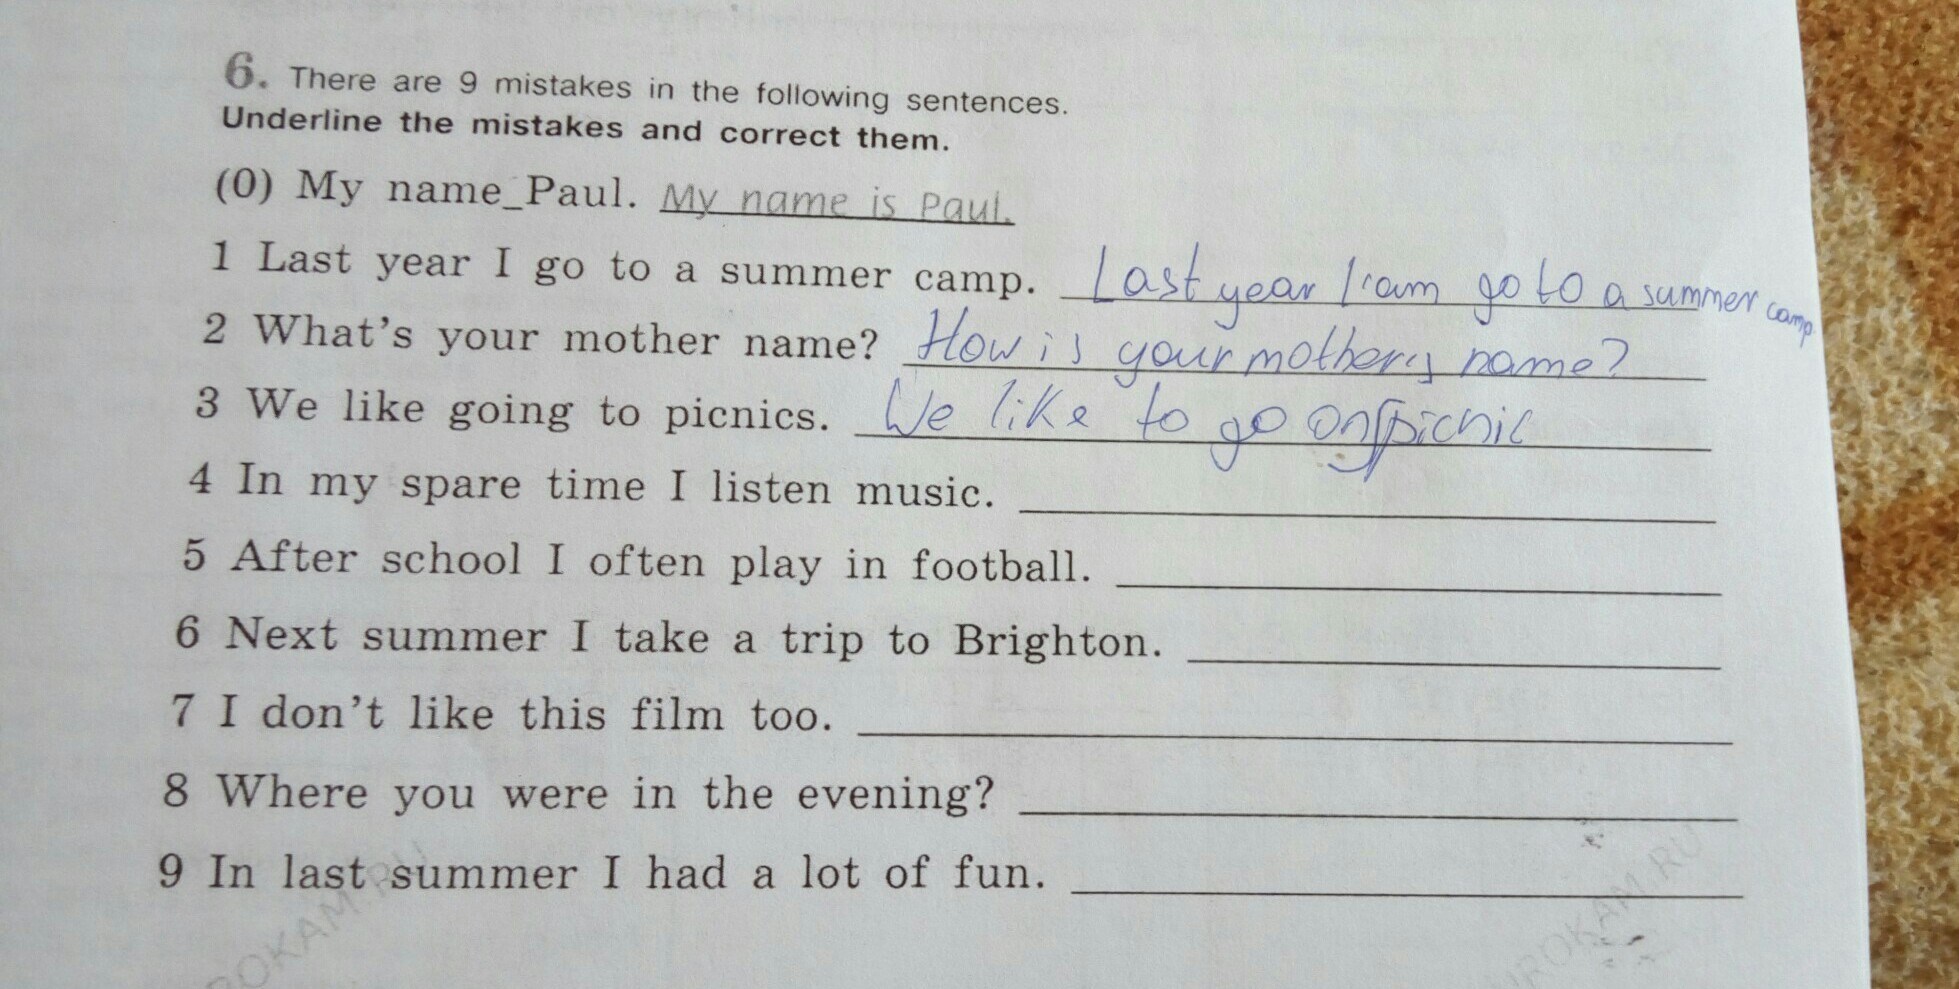 6. There are 9 mistakes in the following sentences.
Underline the mistakes and correct them.
(0) My name_Paul. My name is Paul.
1 Last year I go to a summer camp. Last year I'am go to a summer camp
2 What's your mother name? How is your mother's name?
3 We like going to picnics. We like to go on picnic
4 In my spare time I listen music.
5 After school I often play in football.
6 Next summer I take a trip to Brighton.
7 I don't like this film too.
8 Where you were in the evening?
9 In last summer I had a lot of fun.